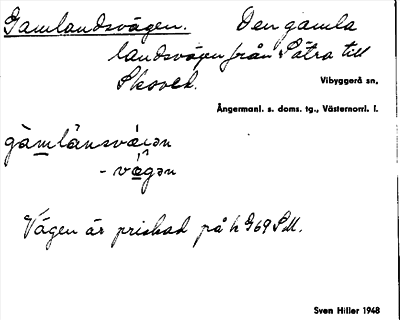 Gamlandsvägen. Den gamla
landsvägen från Sätra till
Skoved.
Vibyggerå sn.
Ångermanl. s. doms. tg., Västernorrl. l.
gàmlânsvä́ɩən
- vä́gən
Vägen är prickad på h G69 SU.
Sven Hiller 1948